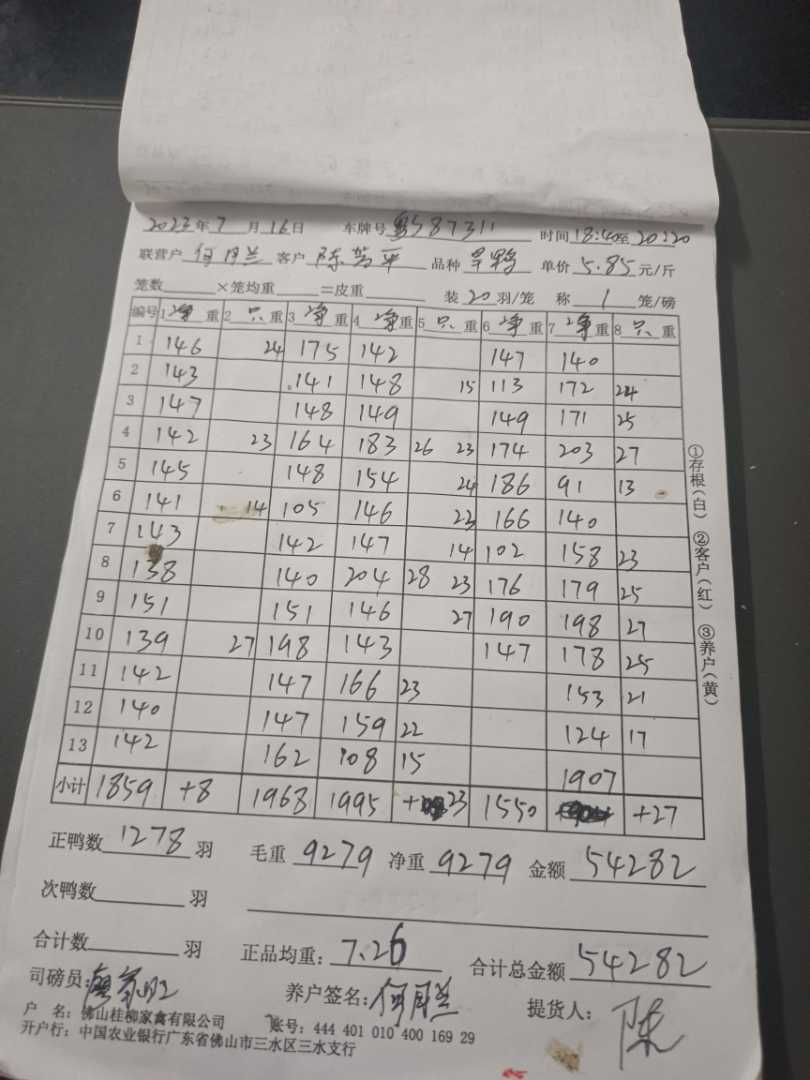 2023年7月16日 车牌号 粤S87311 时间18:40至20:20
联营户 何月兰 客户 陈 平 品种 旱鸭 单价 5.85 元/斤
笼数 ×笼均重 =皮重 装20羽/笼 称 1 笼/磅
编号 1净重 2只重 3净重 4净重 5只重 6净重 7净重 8只重
1 146 24 175 142 147 140
2 143 141 148 15 113 172 24
3 147 148 149 149 171 25
4 142 23 164 183 26 23 174 203 27
5 145 148 154 24 186 91 13
6 141 14 105 146 23 166 140
7 143 142 147 14 102 158 23
8 138 140 204 28 23 176 179 25
9 151 151 146 27 190 198 27
10 139 27 198 143 147 178 25
11 142 147 166 23 153 21
12 140 147 159 22 124 17
13 142 162 108 15 1907
小计 1859 +8 1968 1995 +23 1550 +27
正鸭数 1278 羽 毛重 9279 净重 9279 金额 54282
次鸭数 羽
合计数 羽 正品均重: 7.26 合计总金额 54282
司磅员: 养户签名: 何月兰 提货人: 陈
户 名: 佛山桂柳家禽有限公司 账号: 444 401 010 400 169 29
开户行: 中国农业银行广东省佛山市三水区三水支行
①存根(白) ②客户(红) ③养户(黄)